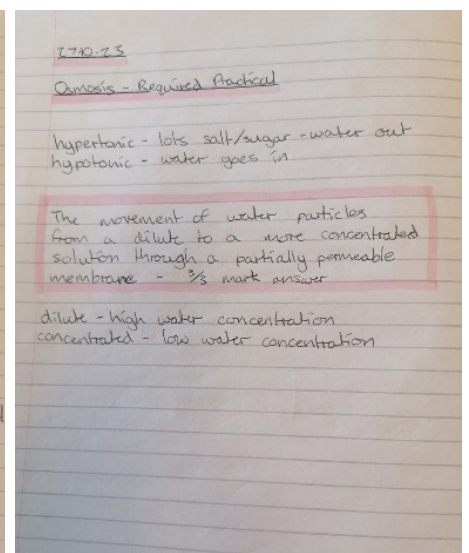 27.10.23
Osmosis - Required Practical
hypertonic - lots salt/sugar - water out
hypotonic - water goes in
The movement of water particles
from a dilute to a more concentrated
solution through a partially permeable
membrane - 3/3 mark answer
dilute - high water concentration
concentrated - low water concentration